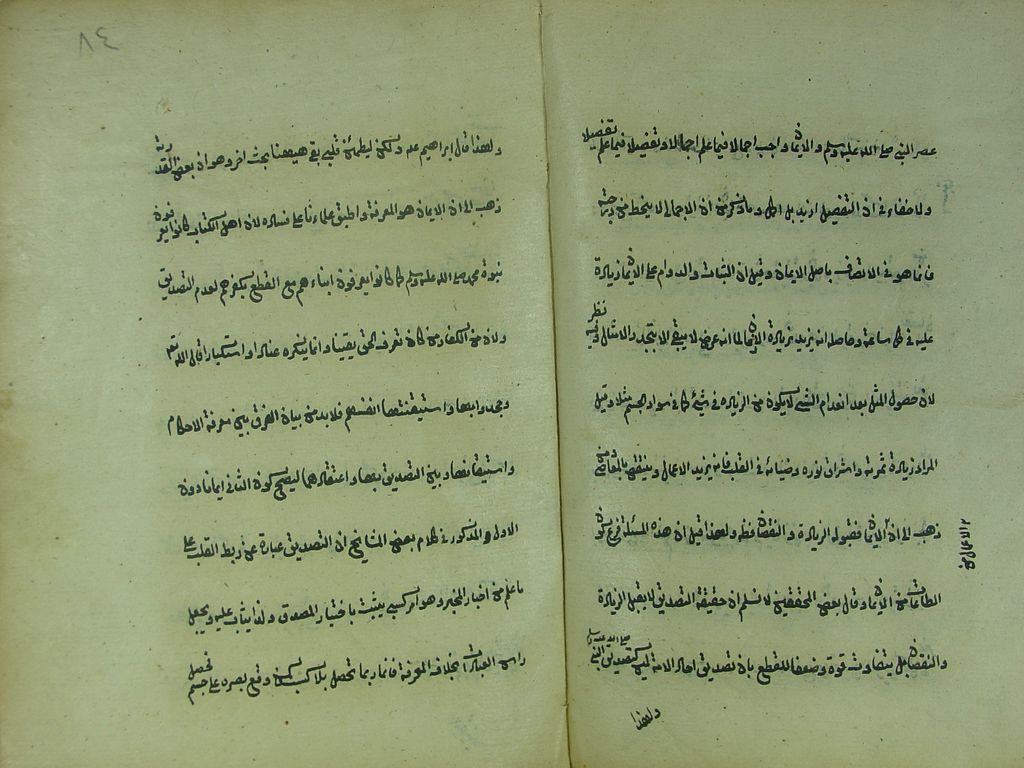 عصر النبي صلى الله عليه وسلم والايمان واجب اجمالا فيما علم اجمالا وتفصيلا فيما علم تفصيلا
ولا خفاء في ان التفصيل ازيد بل اكمل وما ذكر من ان الاجمالي لا ينحط عن درجته
فانما هو في الاتصاف باصل الايمان وقيل ان الثبات والدوام على الايمان زيادة
عليه في كل ساعة وحاصله انه يزيد بزيادة الازمان لما انه عرض لا يبقى الا بتجدد الامثال وفيه نظر
لان حصول المثل بعد انعدام الشيء لا يكون من الزيادة في شيء كما في سواد الجسم مثلا وقيل
المراد زيادة ثمرته واشراق نوره وضيائه في القلب فانه يزيد بالاعمال وينقص بالمعاصي ومن
ذهب الى ان الاعمال من الايمان فقبوله الزيادة والنقصان ظاهر ولهذا قيل ان هذه المسئلة فرع كون
الطاعات من الايمان وقال بعض المحققين لا نسلم ان حقيقة التصديق لا يقبل الزيادة
والنقصان بل يتفاوت قوة وضعفا للقطع بان تصديق احاد الامة ليس كتصديق النبي صلى الله عليه وسلم
ولهذا
٨٤
ولهذا قال ابراهيم عم ولكن ليطمئن قلبي بقي ههنا بحث اخر وهو ان بعض القدرية
ذهب الى ان الايمان هو المعرفة واطبق علماءنا على فساده لان اهل الكتاب كانوا يعرفون
نبوة محمد صلى الله عليه وسلم كما كانوا يعرفون ابناءهم مع القطع بكفرهم لعدم التصديق
ولان من الكفار من كان تعرف الحق يقينا وانما ينكره عنادا واستكبارا قال الله تعالى
وجحدوا بها واستيقنتها انفسهم فلا بد من بيان الفرق بين معرفة الاحكام
واستيقانها وبين التصديق بها واعتقادهما ليصح كون الثاني ايمانا دون
الاول والمذكور في كلام بعض المشائخ ان التصديق عبارة عن ربط القلب على
ما علم من اخبار المخبر وهو امر كسبي يثبت باختيار المصدق ولذا يثاب عليه ويجعل
راس العبادات بخلاف المعرفة فانها ربما تحصل بلا كسب كمن وقع بصره على جسم تحصل